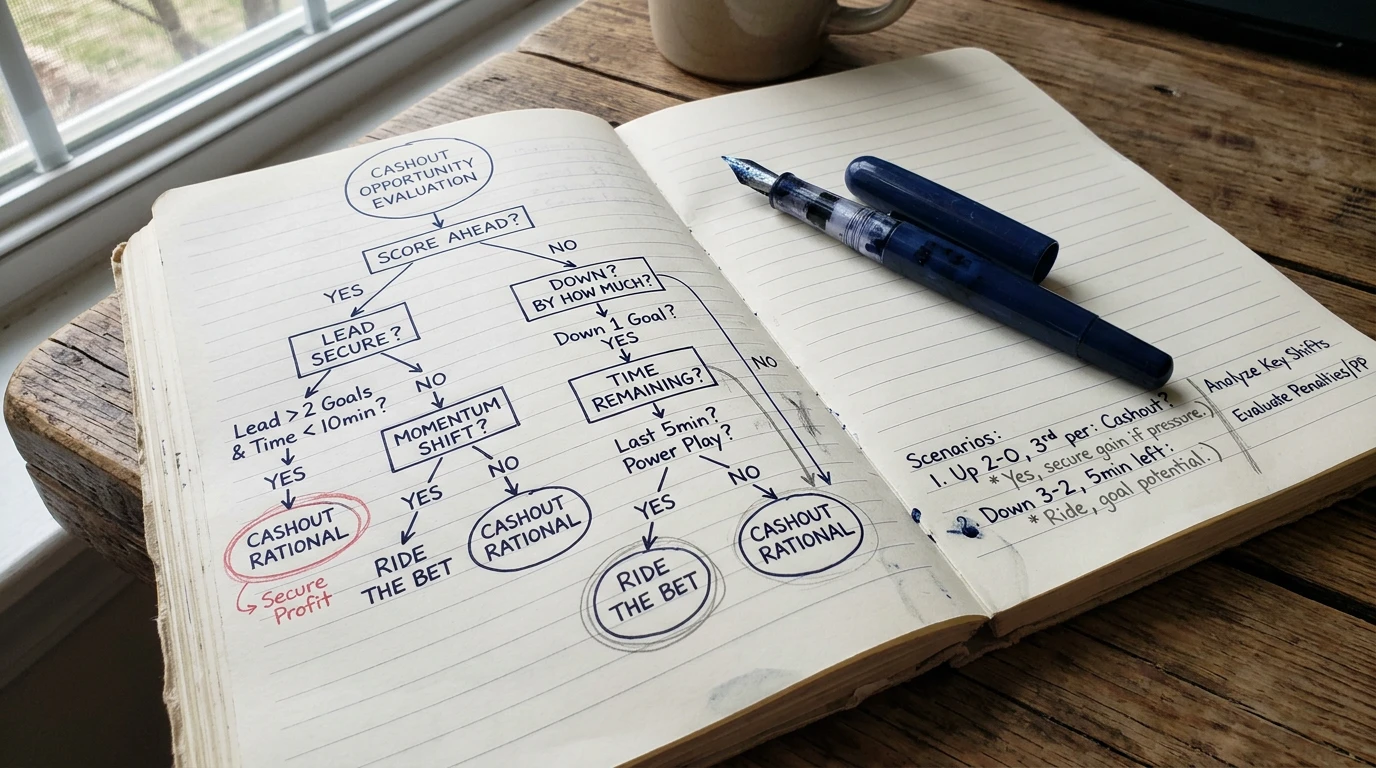 CASHOUT
OPPORTUNITY
EVALUATION
SCORE AHEAD?
YES
NO
LEAD
SECURE?
Lead > 2 Goals
& Time < 10min?
YES
CASHOUT
RATIONAL
Secure
Profit
NO
MOMENTUM
SHIFT?
YES
RIDE
THE BET
NO
CASHOUT
RATIONAL
DOWN?
BY HOW MUCH?
Down 1 Goal?
YES
NO
TIME
REMAINING?
Last 5min?
Power Play?
YES
RIDE
THE BET
NO
CASHOUT
RATIONAL
Scenarios:
1. Up 2-0, 3rd per: Cashout?
* Yes, secure gain if pressure.)
Down 3-2, 5min left:
* Ride, goal potential.)
Analyze Key Shifts
Evaluate Penalties/PP